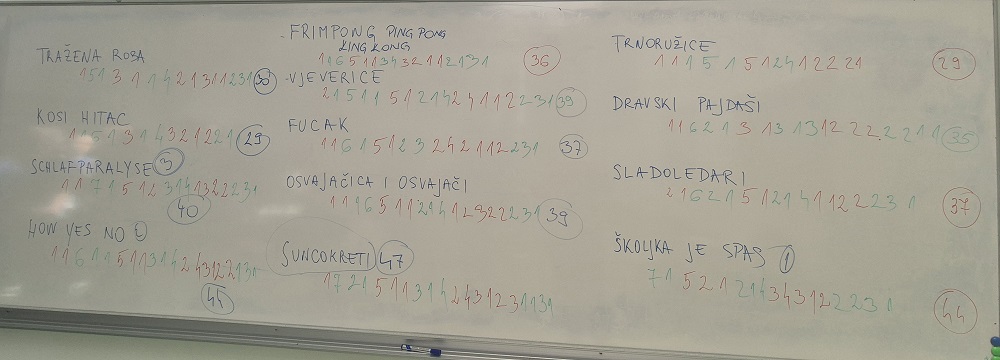 TRAŽENA ROBA
1 5 1 3 1 1 4 2 1 3 1 1 2 3 1 30
KOSI HITAC
1 1 5 1 3 1 4 3 2 1 2 2 1 29
SCHLAFPARALYSE 3
1 1 7 1 5 1 2 3 1 4 1 3 2 2 3 1
40
HOW YES NO
1 1 6 1 1 5 1 1 3 1 4 2 4 3 1 2 2 1 3 1
44
FRIMPONG PING PONG
KING KONG
1 1 6 5 1 1 3 4 3 2 1 1 2 1 3 1 36
VJEVERICE
2 1 5 1 1 5 1 2 1 4 2 4 1 1 2 2 3 1 39
FUCAK
1 1 6 1 5 1 2 3 2 4 2 1 1 2 2 3 1 37
OSVAJAČICA I OSVAJAČI
1 1 1 6 5 1 1 2 1 4 1 2 3 2 2 2 3 1 39
SUNCOKRETI 47
1 7 2 1 5 1 1 3 1 4 2 4 3 1 2 3 1 1 3 1
TRNORUŽICE
1 1 1 5 1 5 1 2 4 1 2 2 2 1 29
DRAVSKI PAJDAŠI
1 1 6 2 1 3 1 3 1 3 1 2 2 2 2 2 1 1 35
SLADOLEDARI
2 1 6 2 1 5 1 2 1 4 1 1 2 2 2 3 1 37
ŠKOLJKA JE SPAS 1
7 1 5 2 1 2 1 4 3 4 3 1 2 2 2 3 1 44